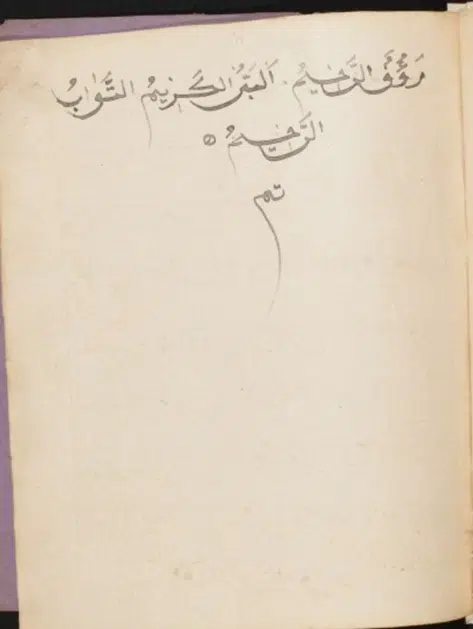 رَؤُفُ الرَّاحِيمُ. اَلبَقِىُ الكَرِيمُ التَّوَابُ
الرَّاحِيمُ
تم